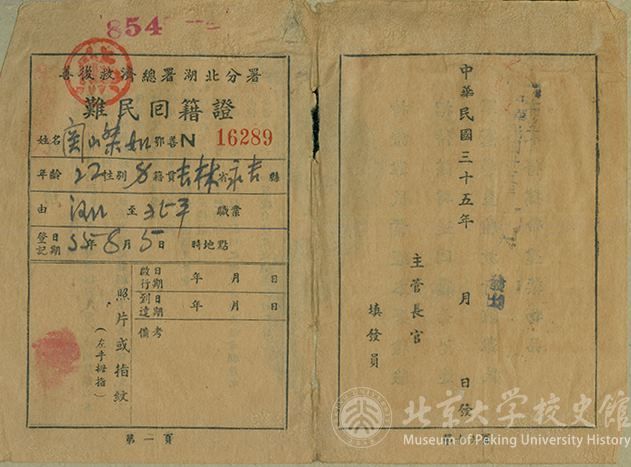 854
善後救濟總署湖北分署
難民回籍證
姓名 鄂善N 16289
年齡 22 性別 男 籍貫 吉林省永吉縣
由 漢口 至 北平 職業
登記日期 35年8月5日 時地點
照片或指紋
(左手拇指)
啟行日期 年 月 日
到達日期 年 月 日
備考
第一頁
中華民國三十五年 月 日發
主管長官
填發員
北京大学校史館
Museum of Peking University History